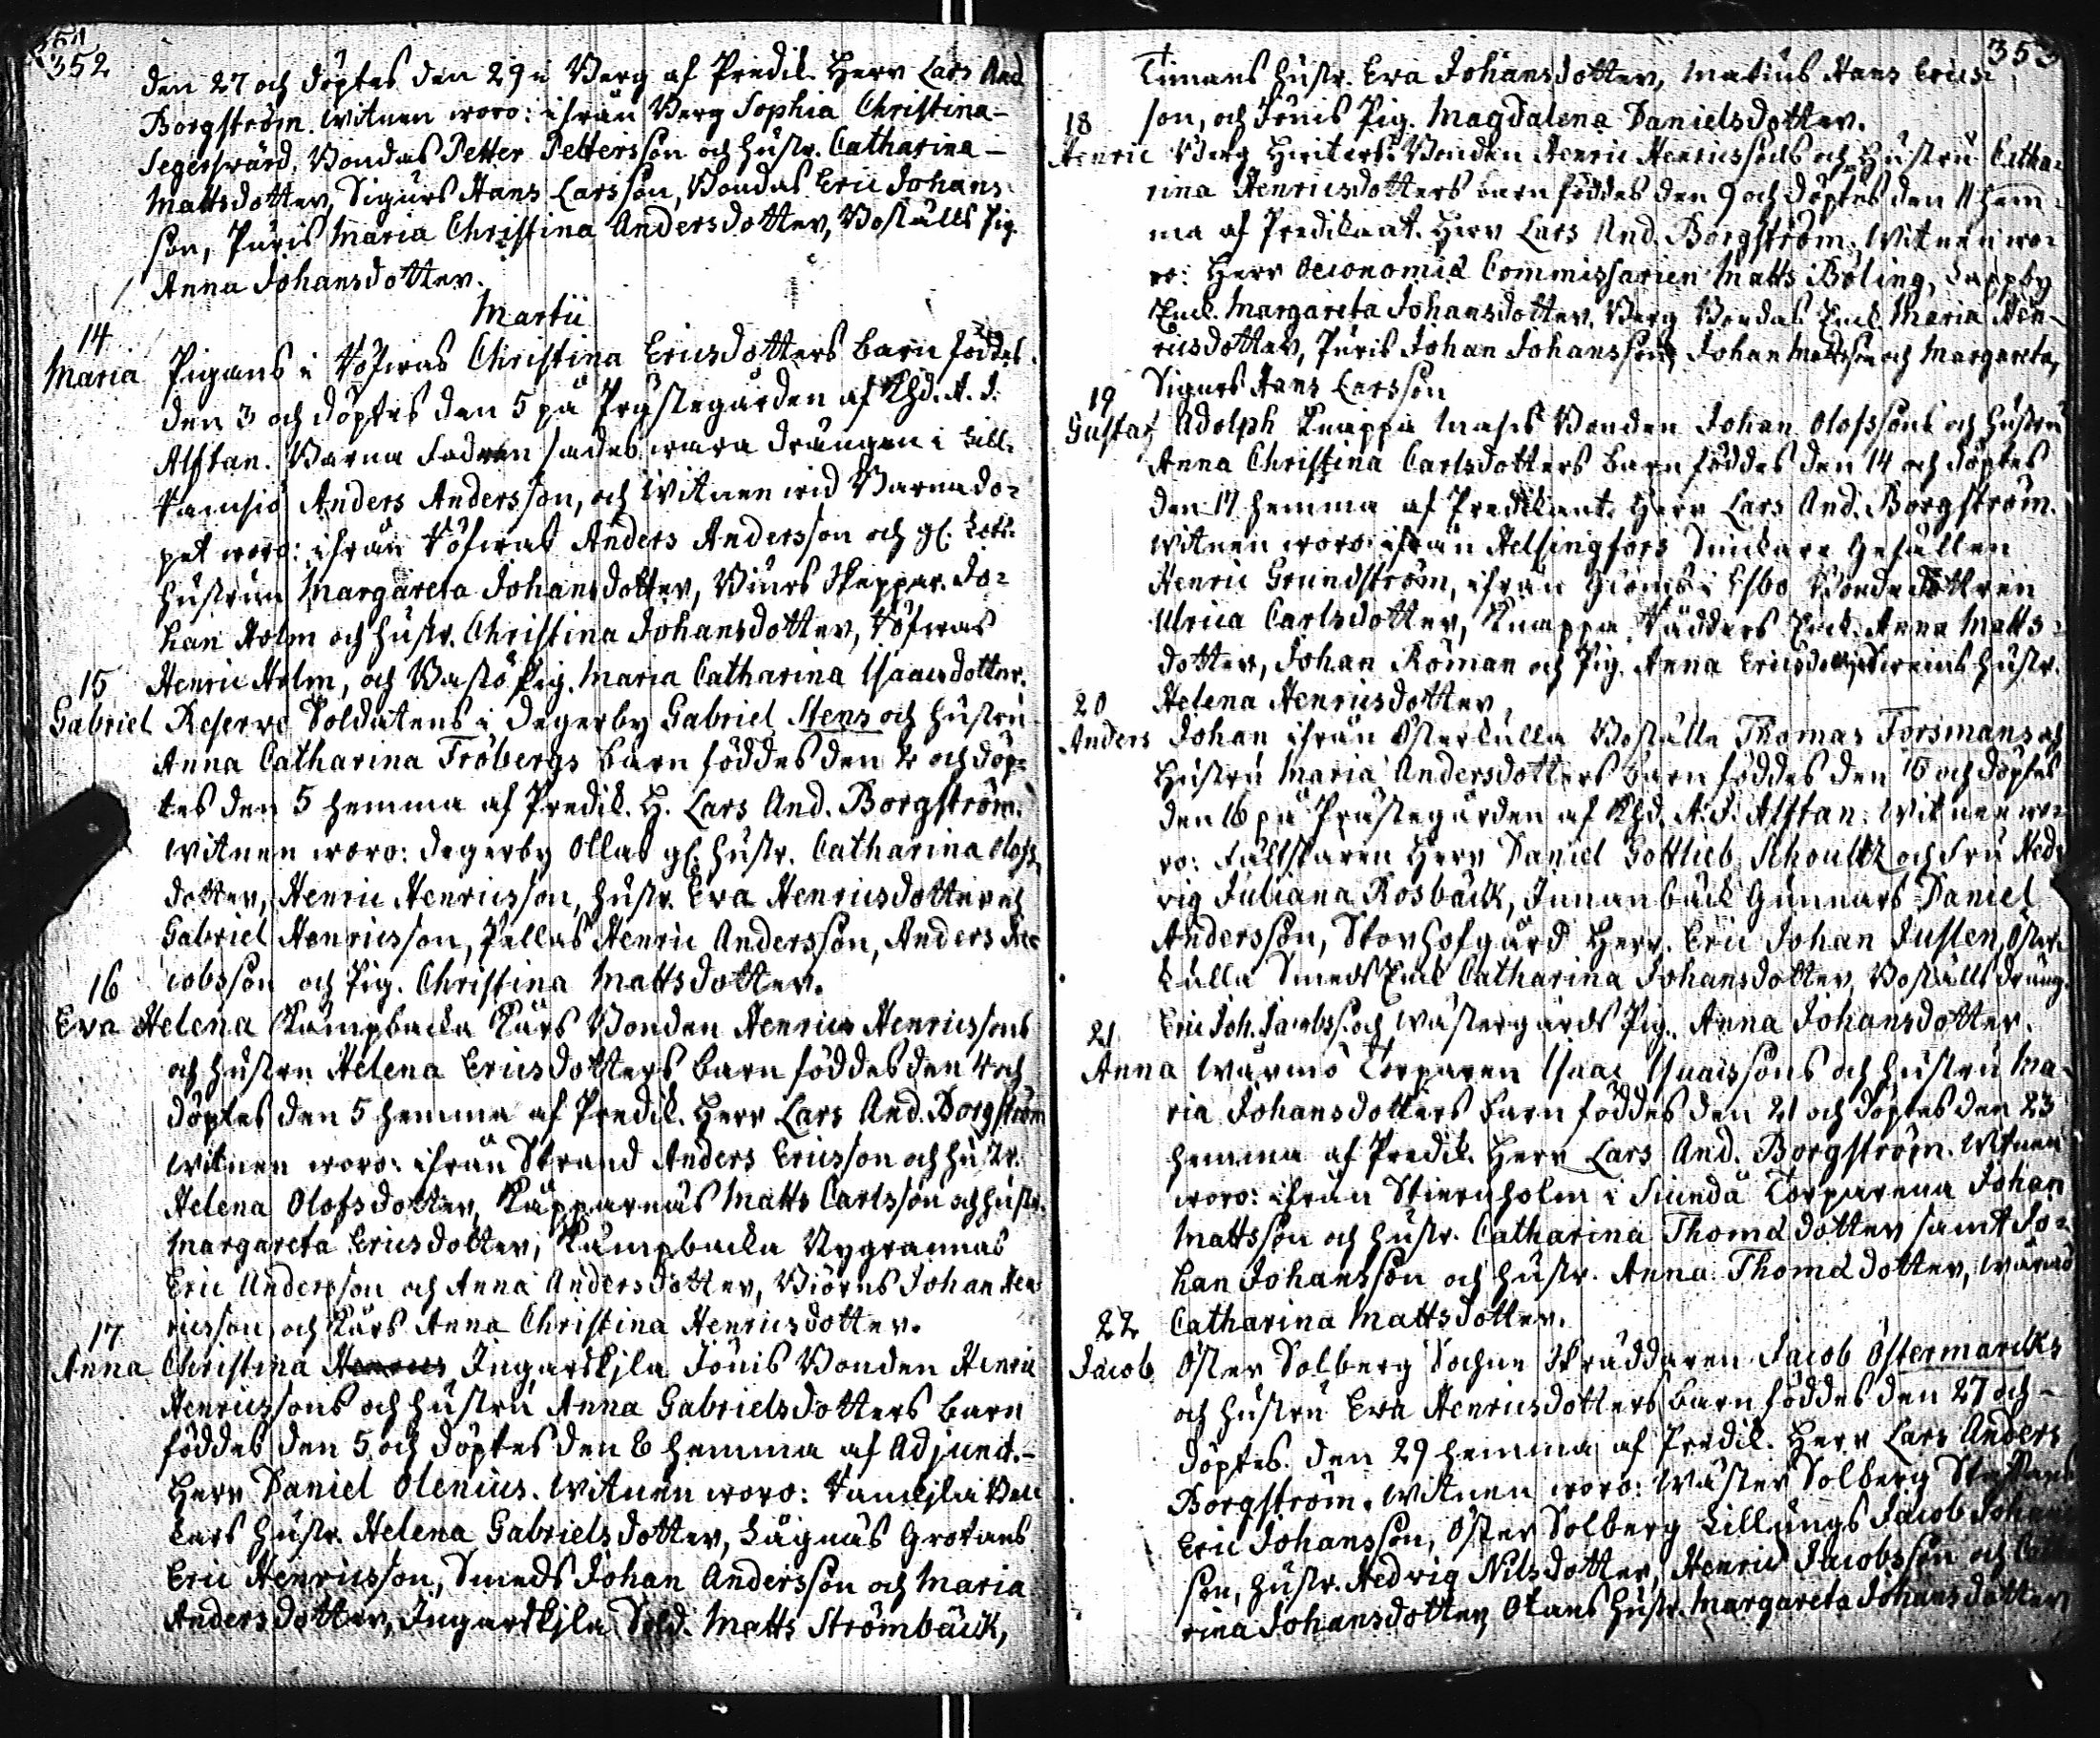 352
den 27 och döptes den 29 i Berg af Predik. Herr Lars And.
Borgström. Witnen woro: ifrån Berg Sophia Christina
Segersvärd, Bondas Petter Pettersson och Hustr. Catharina
Mattsdotter, Sigurs Hans Larsson, Bondas Eric Johans
son, Puris Maria Christina Andersdotter, Boställs Pig.
Anna Johansdotter.
Martii
14
Maria Pigans i Christina Ericsdotters barn föddes
den 3 och döptes den 5 på Prästegården af Khd. A. J.
Alftan. Barna Fadren sades wara drängen i Lill
Anders Andersson, och Witnen wid Barnado=
pet woro: ifrån Anders Andersson och gl.
Hustrun Margareta Johansdotter, Skeppar. Jo=
han Holm och Hustr. Christina Johansdotter,
Henric Holm, och Basö Pig. Maria Catharina Isaacsdotter.
15
Gabriel Reserve Soldatens i Degerby Gabriel Stens och Hustru
Anna Catharina Fröbergs barn föddes den 2 och döp=
tes den 5 hemma af Predik. H. Lars And. Borgström.
Witnen woro: Degerby Ollas gl. Hustr. Catharina Olofs
dotter, Henric Henricsson, Hustr. Eva Henricsdotter och
Gabriel Henricsson, Pellas Henric Andersson, Anders Ja=
cobsson och Pig. Christina Mattsdotter.
16
Eva Helena Kämpbacka Kårs Bonden Henrics Henricssons
och Hustru Helena Ericsdotters barn föddes den 4 och
döptes den 5 hemma af Predik. Herr Lars And. Borgström
Witnen woro: ifrån Strand Anders Ericsson och Hustr.
Helena Olofsdotter, Kapparnäs Matts Carlsson och Hustr.
Margareta Ericsdotter, Kämpbacka Nygrannas
Eric Andersson och Anna Andersdotter, Biörns Johan Hen
ricsson, och Kårs Anna Christina Henricsdotter.
17
Anna Christina Ingarskila Jönis Bonden Henric
Henricssons och Hustru Anna Gabrielsdotters barn
föddes den 5 och döptes den 6 hemma af Adjunct.
Herr Daniel Olenius. Witnen woro:
Lars Hustr. Helena Gabrielsdotter, Lågnäs Grotans
Eric Henricsson, Smeds Johan Andersson och Maria
Andersdotter, Ingarskila Sold. Matts Strömbäck,
353
Timans Hustr. Eva Johansdotter, Hans Erics
son, och Jönis Pig. Magdalena Danielsdotter.
18
Henric Berg Bonden Henric Henricssons och Hustru Catha=
rina Henricsdotters barn föddes den 9 och döptes den 11 hem=
ma af Predikant. Herr Lars And. Borgström. Witnen wo=
ro: Herr Oeconomiæ Commissarien Matts Böling, Lappby
Enck. Margareta Johansdotter, Berg Bondas Enck. Maria Hen
ricsdotter, Puris Johan Johansson, Johan Mattsson och Margareta,
Sigurs Hans Larsson
19
Gustaf Adolph Knappa Bonden Johan Olofssons och Hustru
Anna Christina Carlsdotters barn föddes den 14 och döptes
den 17 hemma af Predikant. Herr Lars And. Borgström.
Witnen woro: ifrån Helsingfors Snickare Gesällen
Henric Grundström, ifrån i Esbo Bondedottren
Ulrica Carlsdotter, Knappa Enck. Anna Matts=
dotter, Johan Roman och Pig. Anna Ericsdotter, Hustr.
Helena Henricsdotter,
20
Anders Johan ifrån Österkulla Boställe Thomas Forsmans och
Hustru Maria Andersdotters barn föddes den 15 och döptes
den 16 på Prästegården af Khd. A. J. Alftan. Witnen wo=
ro: Fältskären Herr Daniel Gottlieb Schoultz och Fru Hed=
vig Juliana Rosbäck, Innanbäck Gunnars Daniel
Andersson, Storhofgård Herr. Eric Johan Juslen, Öster
kulla Smeds Enck Catharina Johansdotter, Boställs dräng.
Eric Joh. Jacobss. och Wästergårds Pig. Anna Johansdotter.
21
Anna Wärmö Torparen Isaac Isaacssons och Hustru Ma=
ria Johansdotters barn föddes den 21 och döptes den 23
hemma af Predik. Herr Lars And. Borgström. Witnen
woro: ifrån Stiernholm i Siundå Torparena Johan
Mattsson och Hustr. Catharina Thomædotter samt Jo=
han Johansson och Hustr. Anna Thomædotter, Wärmö
Catharina Mattsdotter.
22
Jacob Öster Solberg Sochne Skräddaren Jacob Östermarcks
och Hustru Eva Henricsdotters barn föddes den 27 och
döptes den 29 hemma af Predik. Herr Lars Anders
Borgström. Witnen woro: Wäster Solberg Staffans
Eric Johansson, Öster Solberg Lillungs Jacob Johans
son, Hustr. Hedvig Nilsdotter, Henric Jacobsson och Catha
rina Johansdotter, Otans Hustr. Margareta Johansdotter